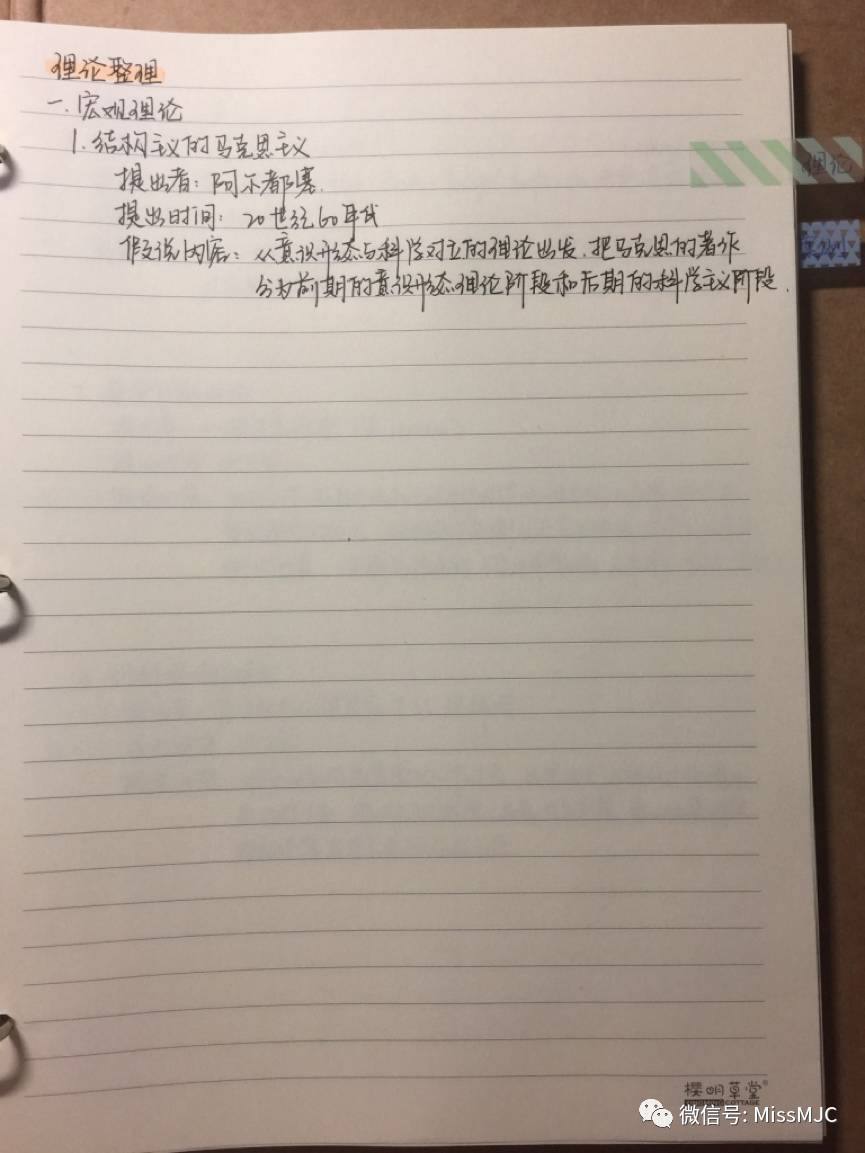 理论整理
一.宏观理论
1.结构主义的马克思主义
提出者：阿尔都塞.
提出时间：20世纪60年代
假说内容：从意识形态与科学对立的理论出发.把马克思的著作
分为前期的意识形态理论阶段和后期的科学主义阶段.
理论
樱明草堂®
COTTAGE
微信号: MissMJC